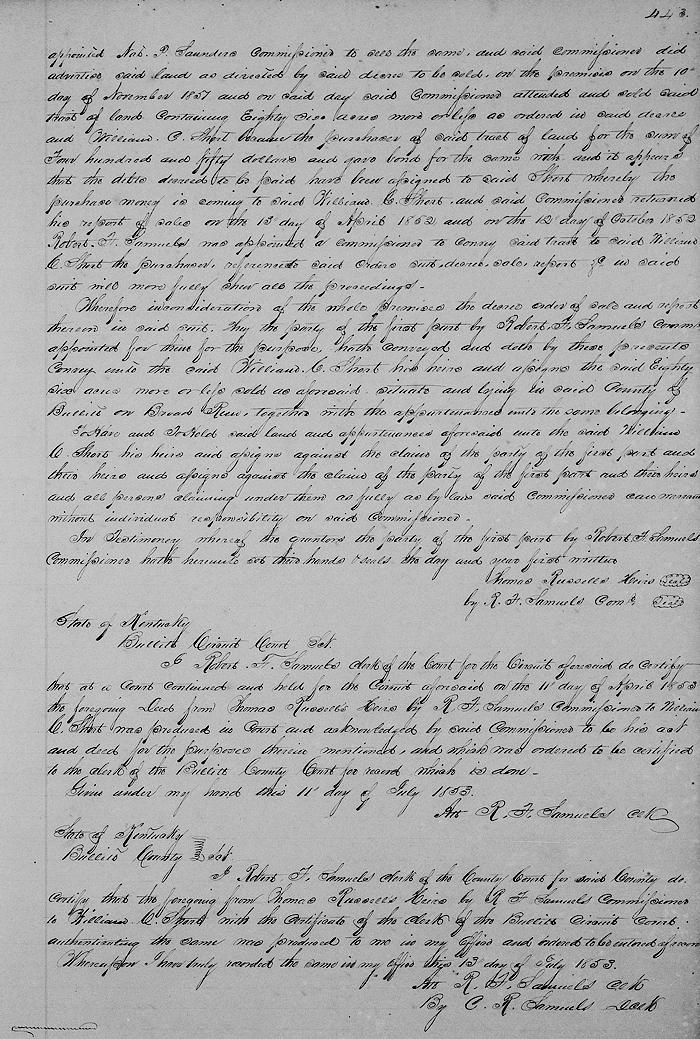 443
appointed Nat. P. Saunders Commissioner to sell the same, and said Commissioner did
advertise said land as directed by said decree to be sold, on the premises on the 10th
day of November 1851 and on said day said Commissioner attended and sold said
tract of land containing Eighty six acres more or less as ordered in said decree
and William C. Short became the purchaser of said tract of land for the sum of
Four hundred and fifty dollars and gave bond for the same with and it appears
that the debts decreed to be paid have been assigned to said Short whereby the
purchase money is coming to said William C. Short, and said Commissioner returned
his report of sales on the 13 day of April 1852 and on the 12 day of October 1852
Robert. F. Samuels was appointed a commissioner to convey said tract to said William
C. Short the purchaser, reference to said orders suit, decree, sale, report &c in said
suit will more fully shew all the proceedings -
Wherefore in consideration of the whole premises the decree order of sale and report
thereon in said suit. They the party of the first part by Robert. F. Samuels Commr
appointed for them for the purpose, hath conveyed and doth by these presents
Convey unto the said William. C. Short his heirs and assigns the said Eighty
six acres more or less sold as aforesaid. situate and lying in said County of
Bullitt on Broad Run, together with the appurtenances unto the same belonging -
To Have and To Hold said land and appurtenances aforesaid unto the said William
C. Short his heirs and assigns against the claim of the party of the first part and
their heirs and assigns against the claim of the party of the first part and their heirs
and all persons claiming under them as fully as by law said Commissioner can warrant
without individual responsibility on said Commissioner -
In Testimony whereof the grantors the party of the first part by Robert. F. Samuels
Commissioner hath hereunto set their hands & seals the day and year first written
Thomas Russells Heirs Seal
by R. F. Samuels Comr. Seal
State of Kentucky
Bullitt Circuit Court Sct.
I Robert. F. Samuels clerk of the Court for the Circuit aforesaid do certify
that at a Court continued and held for the Circuit aforesaid on the 11 day of April 1853
the foregoing Deed from Thomas Russells Heirs by R. F. Samuels Commissioner to William
C. Short was produced in Court and acknowledged by said Commissioner to be his act
and deed for the purposes therein mentioned, and which was ordered to be certified
to the clerk of the Bullitt County Court for record which is done -
Given under my hand this 11 day of July 1853.
Att R. F. Samuels Clk
State of Kentucky
Bullitt County Sct
I Robert F. Samuels clerk of the County Court for said County do
certify that the foregoing from Thomas Russells Heirs by R F Samuels Commissioner
to William C. Short with the certificate of the clerk of the Bullitt Circuit Court
authenticating the same was produced to me in my office and ordered to be entered of record
Whereupon I have truly recorded the same in my office this 13 day of July 1853.
Att R. F. Samuels Clk
By C. R. Samuels